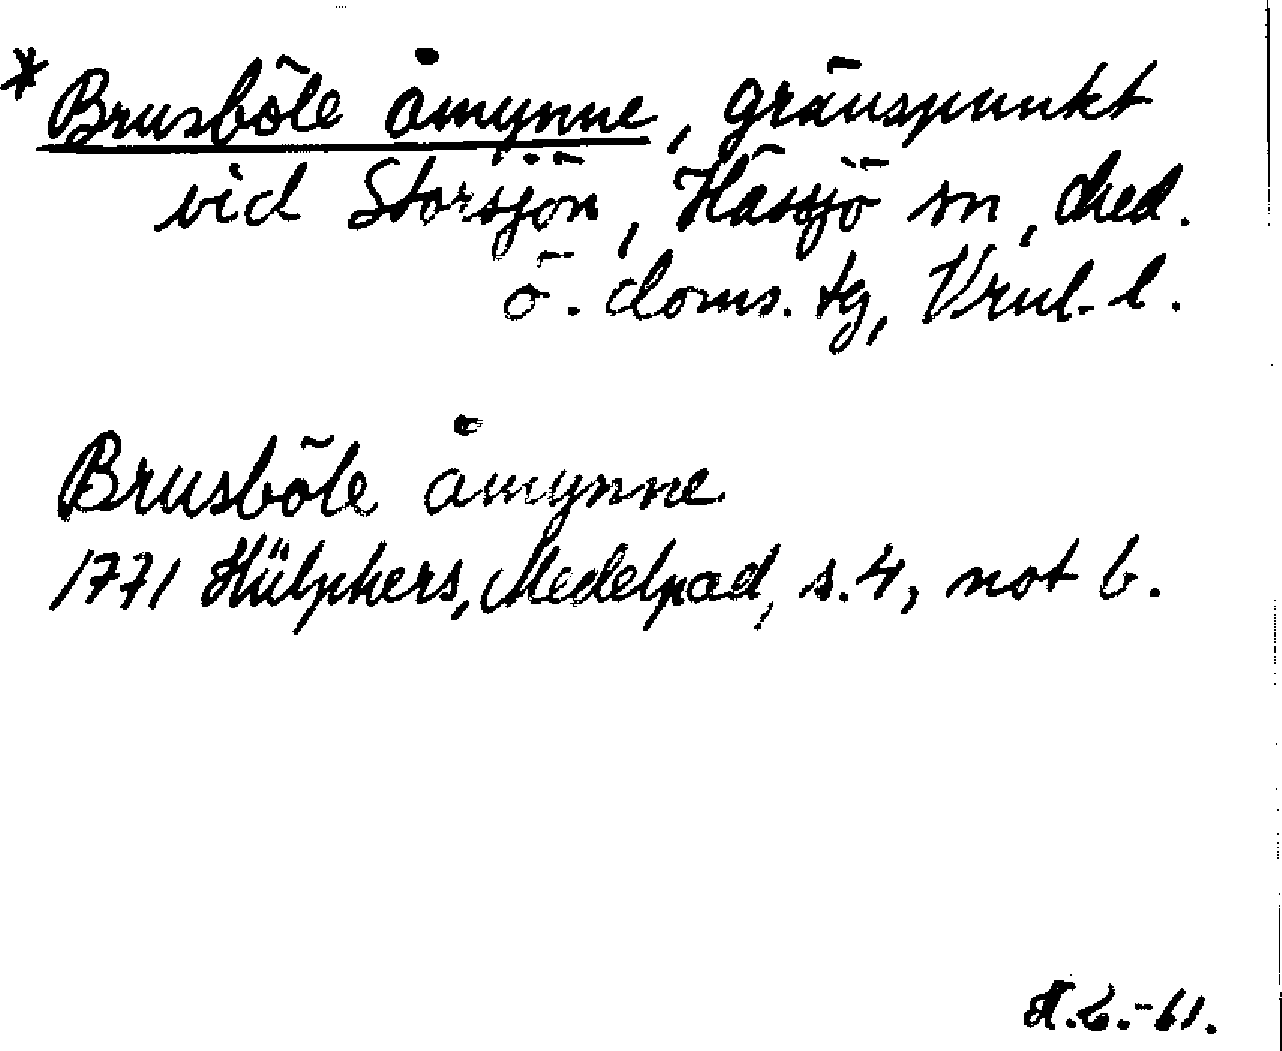 * Brusböle åmynne, gränspunkt
vid Storsjön, Hässjö sn, Med.
ö. doms. tg, Vrnl. l.
Brusböle åmynne
1771 Hülphers, Medelpad, s. 4, not b.
-61.